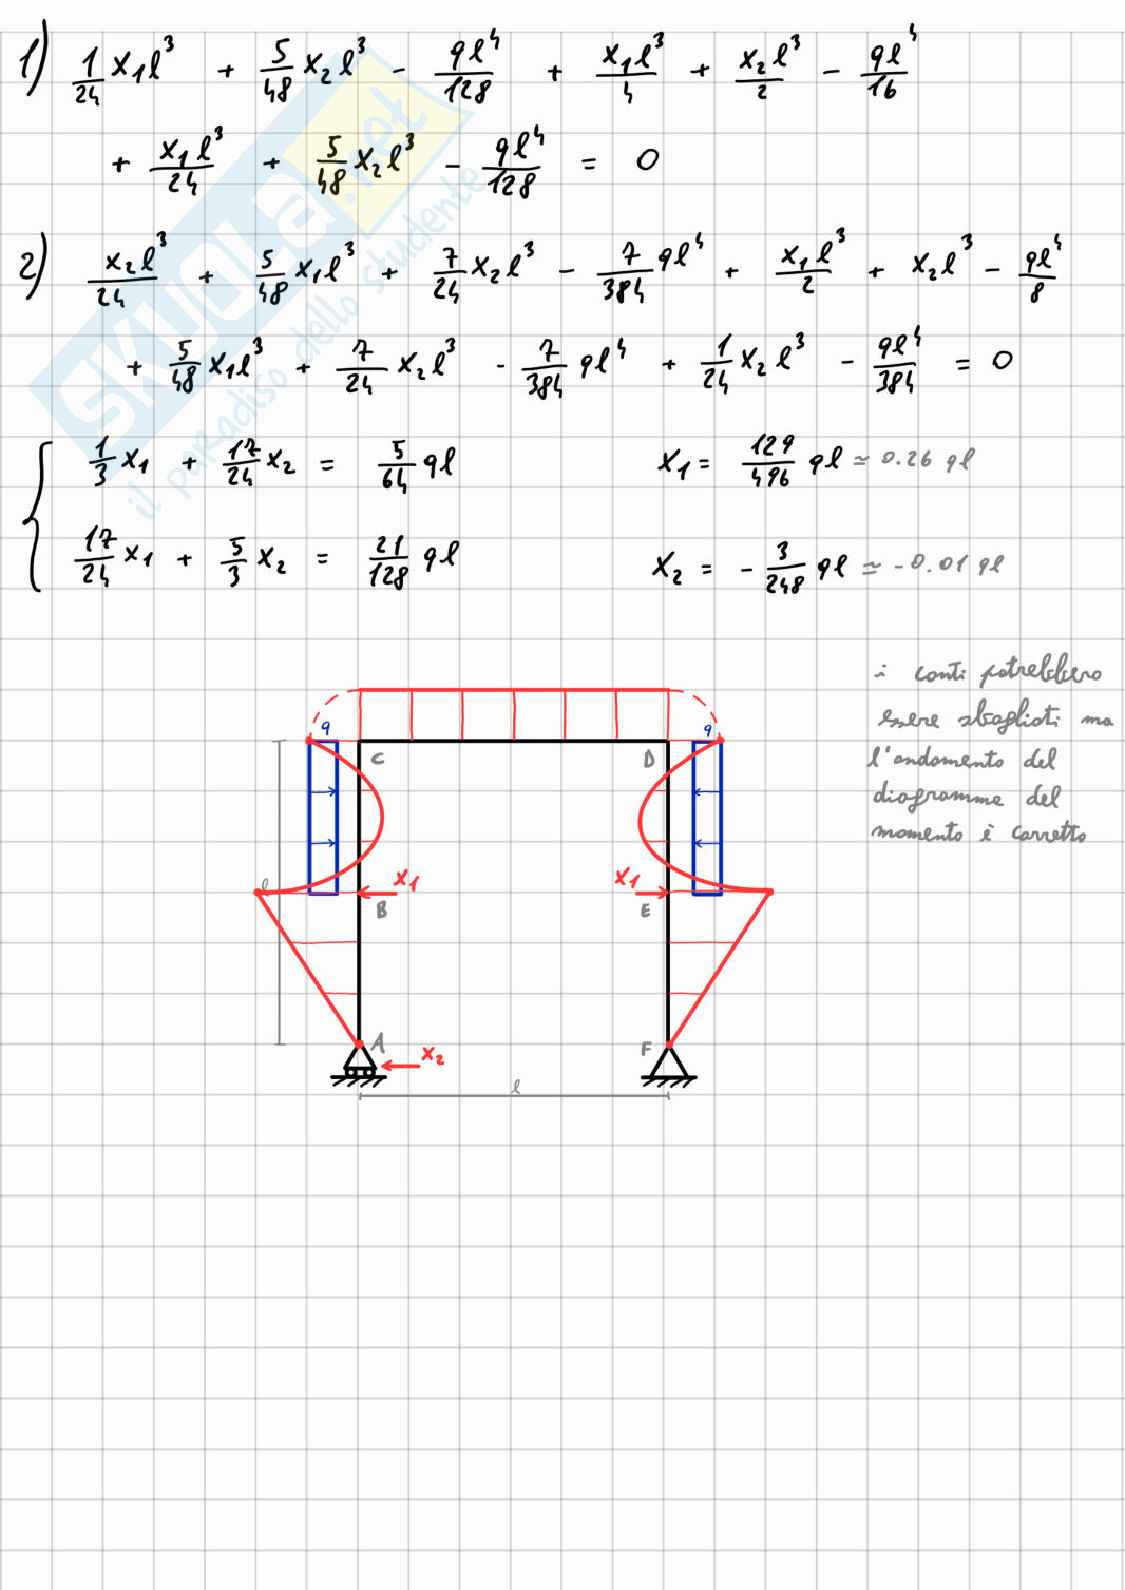 1) 1/24 x₁l³ + 5/48 x₂l³ - ql⁴/128 + x₁l³/4 + x₂l³/2 - ql⁴/16
+ x₁l³/24 + 5/48 x₂l³ - ql⁴/128 = 0
2) x₂l³/24 + 5/48 x₁l³ + 7/24 x₂l³ - 7/384 ql⁴ + x₁l³/2 + x₂l³ - ql⁴/8
+ 5/48 x₁l³ + 7/24 x₂l³ - 7/384 ql⁴ + 1/24 x₂l³ - ql⁴/384 = 0
1/3 x₁ + 17/24 x₂ = 5/64 ql
x₁ = 129/496 ql ≃ 0.26 ql
17/24 x₁ + 5/3 x₂ = 21/128 ql
x₂ = - 3/248 ql ≃ -0.01 ql
i conti potrebbero
essere sbagliati ma
l'andamento del
diagramma del
momento è corretto
q
q
C
D
l
x₁
x₁
B
E
A
F
x₂
l
SKUOLA.net
il paradiso dello studente